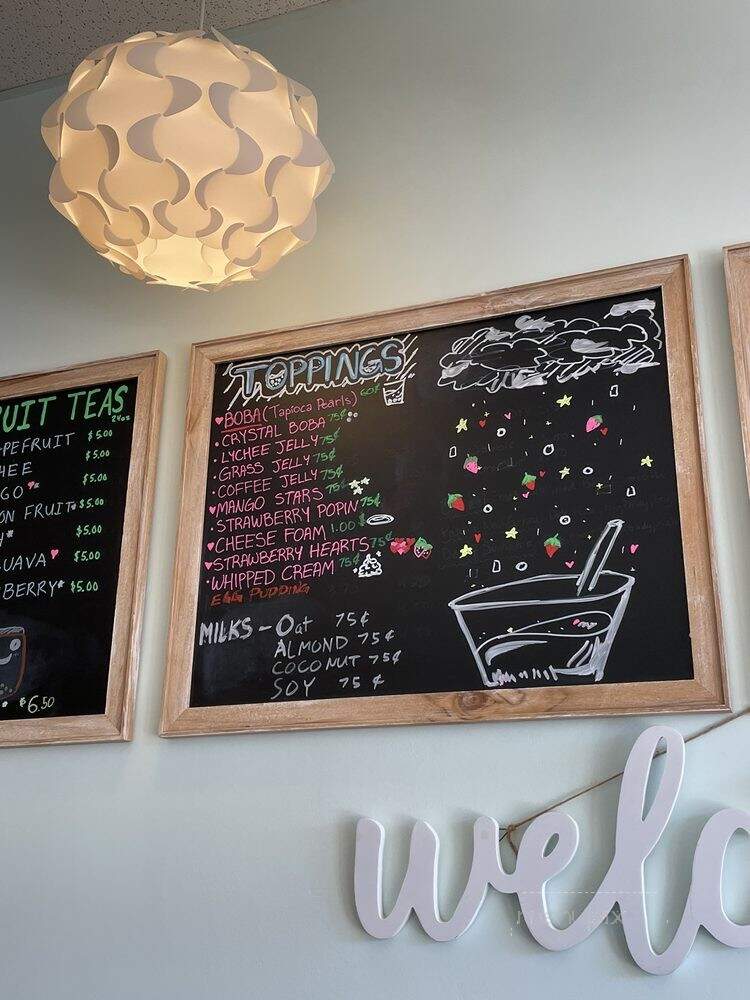 UIT TEAS
24oz
PEFRUIT $5.00
HEE $5.00
GO $5.00
ON FRUIT $5.00
$5.00
UAVA $5.00
BERRY $5.00
$6.50
TOPPINGS
BOBA (Tapioca Pearls) 60¢
CRYSTAL BOBA 75¢
LYCHEE JELLY 75¢
GRASS JELLY 75¢
COFFEE JELLY 75¢
MANGO STARS 75¢
STRAWBERRY POPIN 75¢
CHEESE FOAM 1.00
STRAWBERRY HEARTS 75¢
WHIPPED CREAM 75¢
EGG PUDDING
MILKS - Oat 75¢
ALMOND 75¢
COCONUT 75¢
SOY 75¢
welc